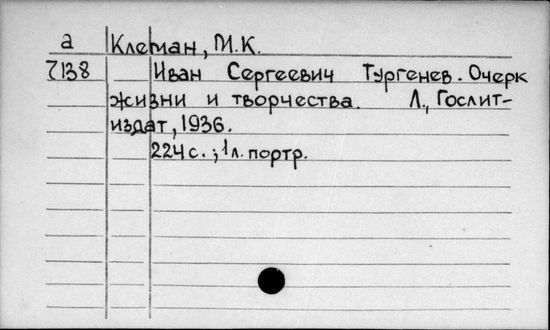 а Клеман, М.К.
7138 Иван Сергеевич Тургенев. Очерк
жизни и творчества. Л., Гослит-
издат, 1936.
224 с.; 1 л. портр.